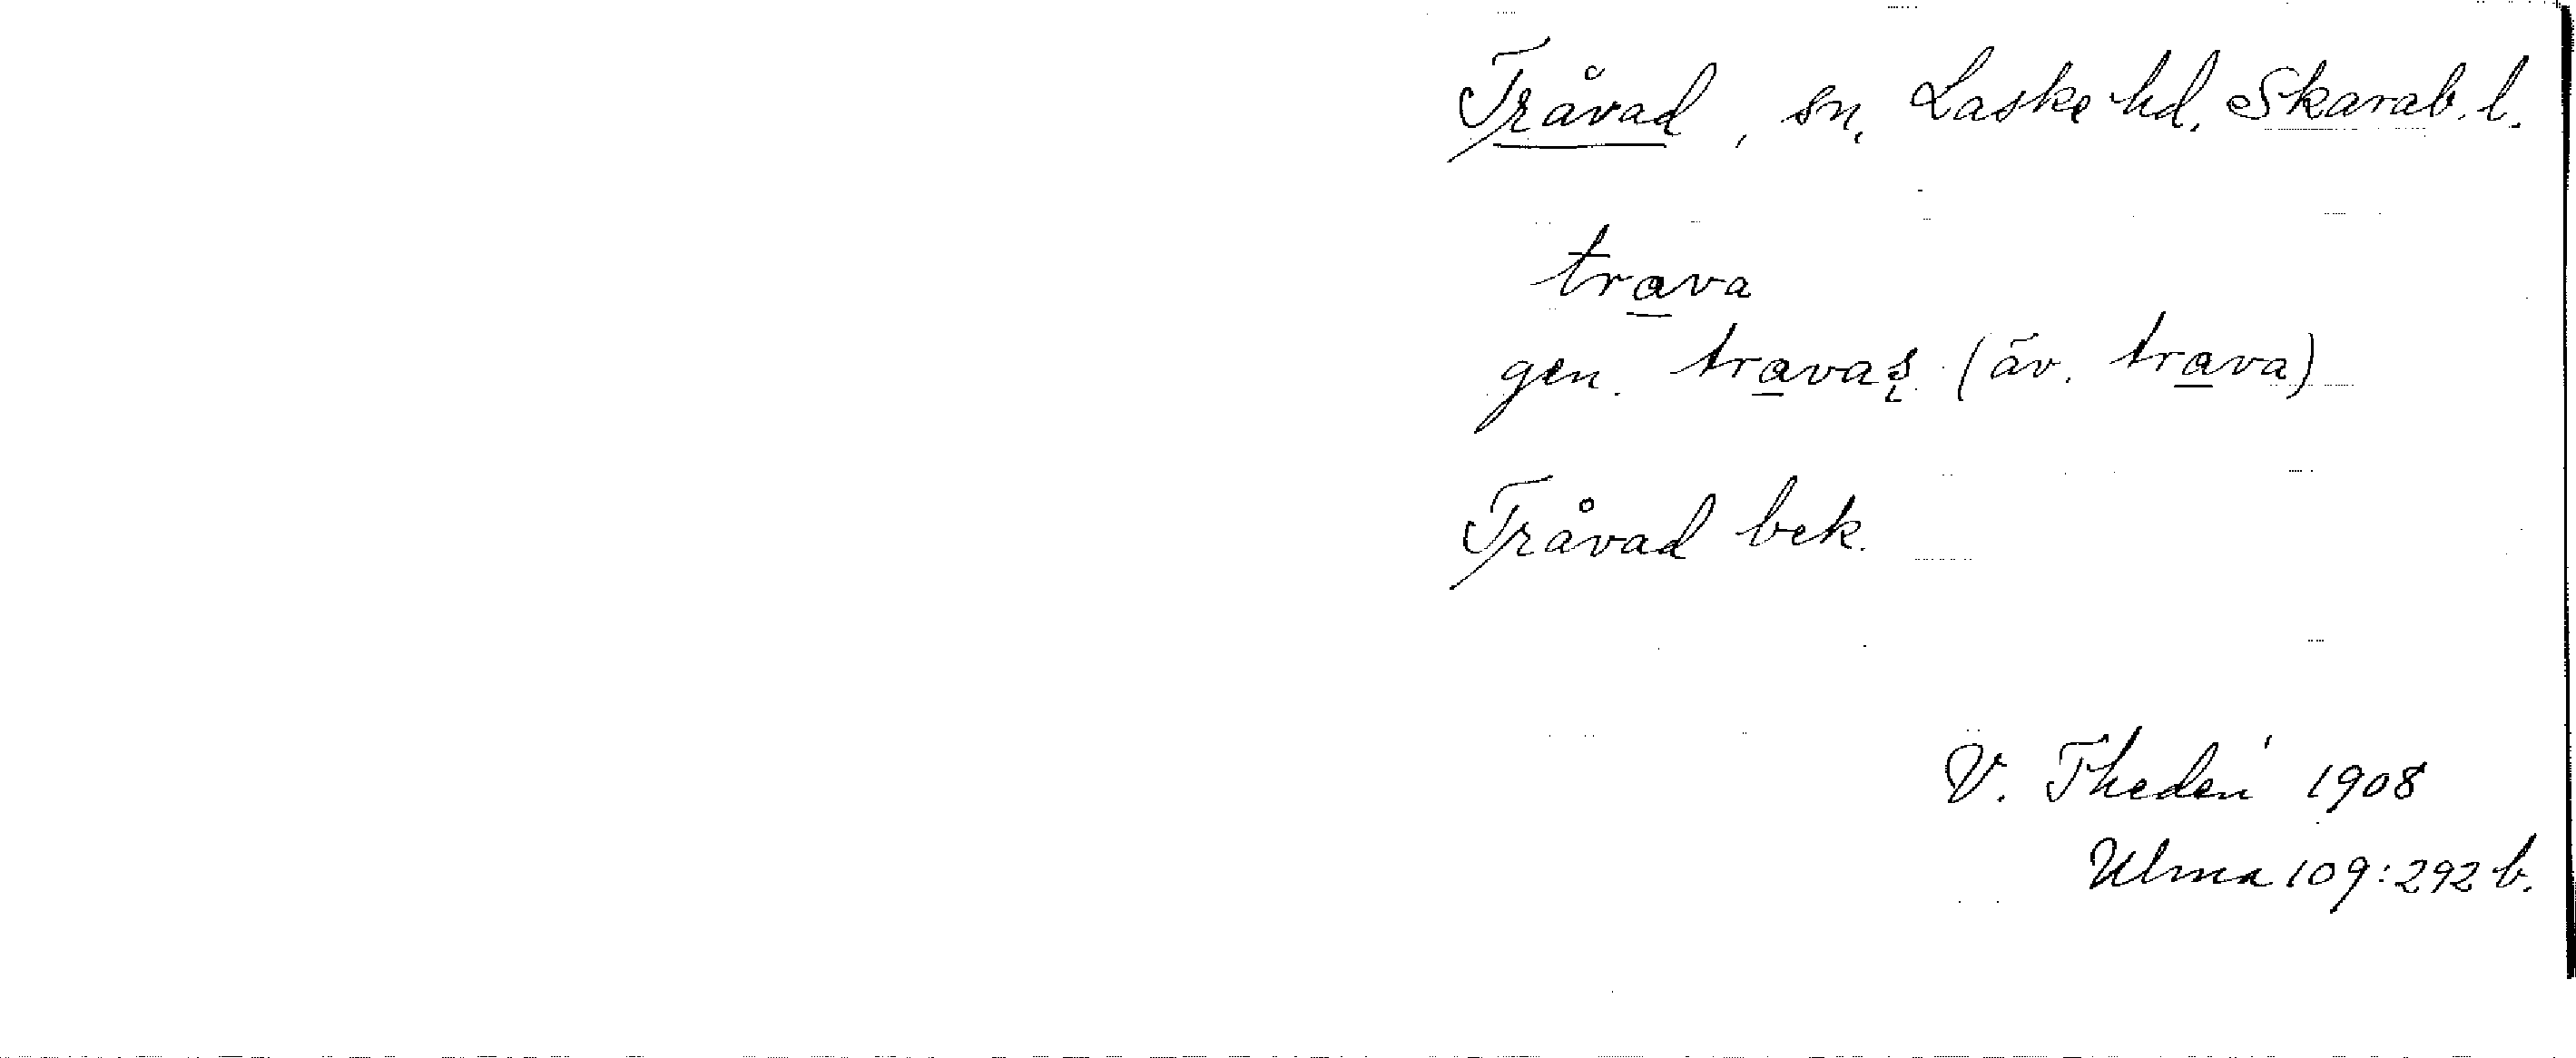 Tråvad, sn, Laske hd. Skarab. l.
trava
gen. travas (äv. trava)
Tråvad bek.
V. Thedén 1908
Ulma 109:292 b.